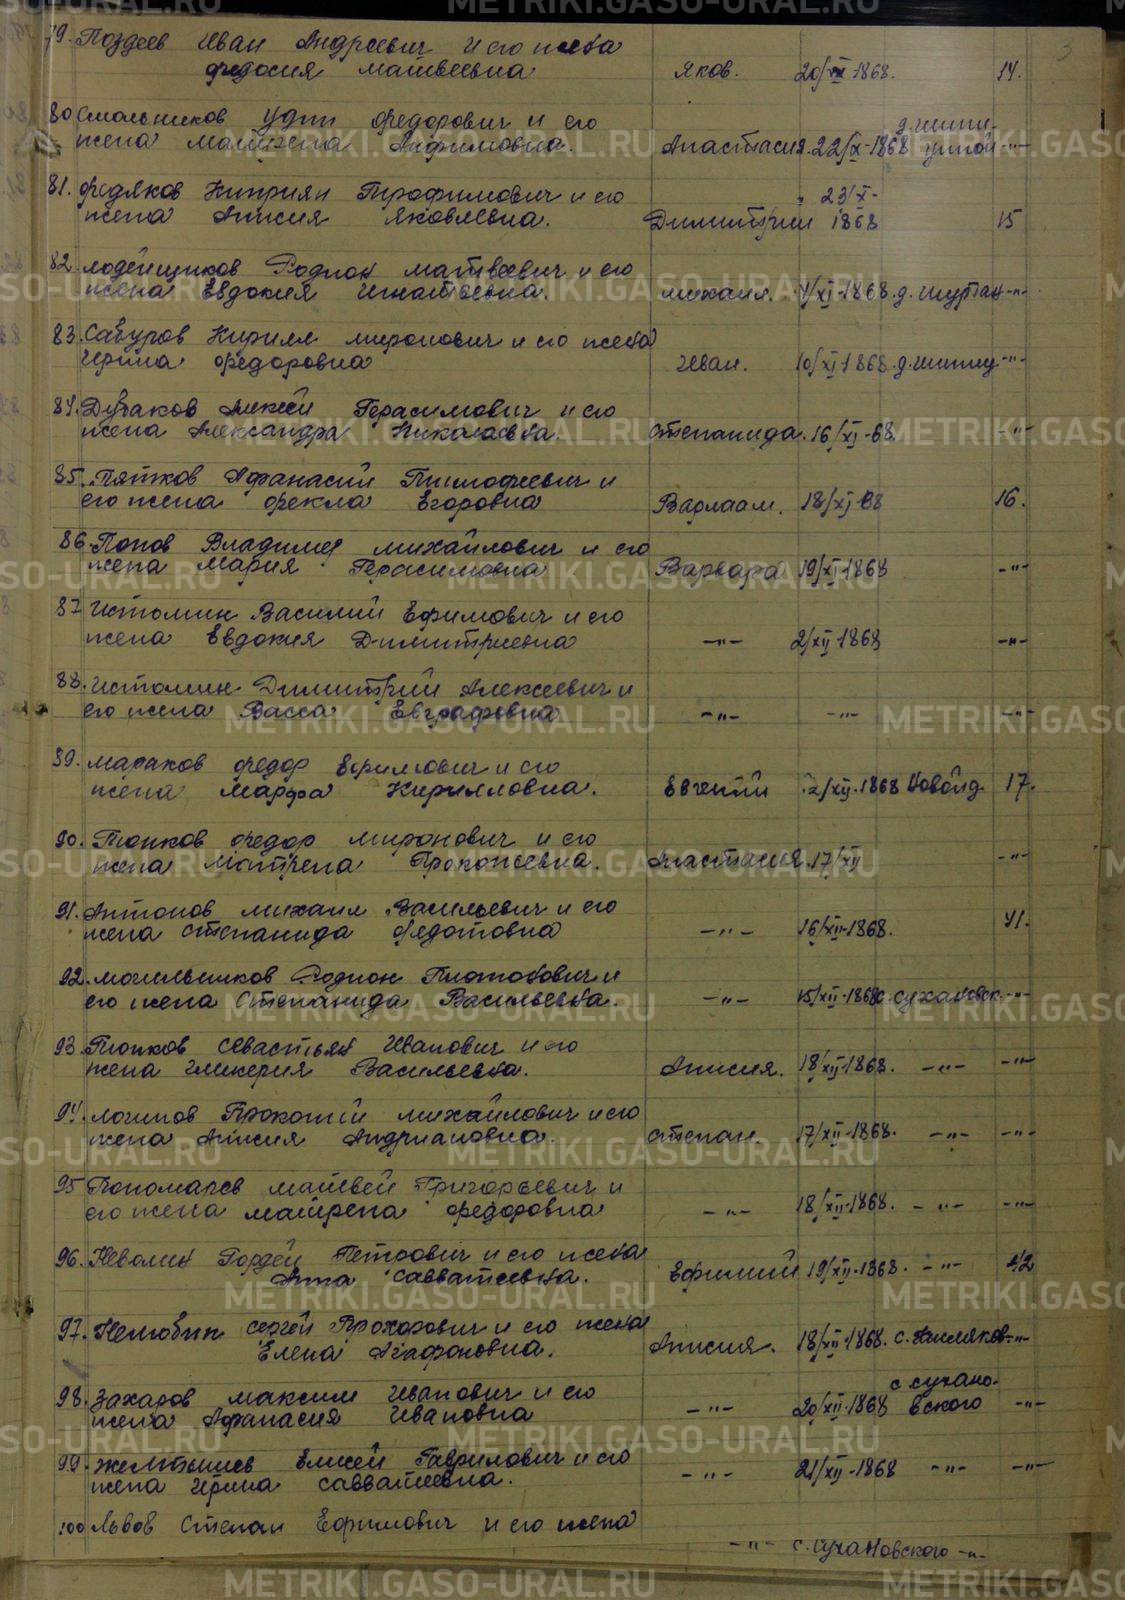 79. Поздеев Иван Андреевич и его жена
Федосия Матвеевна Яков. 20/ 1868. 14.
80 Смольников Фёдорович и его д. Шиши-
жена Матрена Анфимовна. Анастасия. 22/X-1868 -"-
81. Федяков Киприян Трофимович и его " 23/X-
жена Анисия Яковлевна. Димитрий 1868 15
82. Лодейщиков Родион Матвеевич и его
жена Евдокия Игнатьевна. Михаил. /XI-1868. д. Шуртан -"-
83. Сабуров Кирилл Миронович и его жена
Ирина Федоровна Иван. 10/XI-1868. -"-
84. Дубаков Алексей Герасимович и его
жена Александра Николаевна. Степанида. 16/XI-68. -"-
85. Пятков Афанасий Тимофеевич и
его жена Фекла Егоровна Варлаам. 18/XI-68 16.
86. Попов Владимер Михайлович и его
жена Мария Герасимовна Варвара 19/XI-1868 -"-
87 Истомин Василий Ефимович и его
жена Евдокия Димитриевна -"- 2/XII-1868 -"-
88. Истомин Димитрий Алексеевич и
его жена Васса Евграфовна -"- -"- -"-
89. Мараков Федор Ефимович и его
жена Марфа Кирилловна. Евгений 2/XII-1868 17.
90. Топков Федор Миронович и его
жена Матрена Прокопьевна. Анастасия. 17/XII -"-
91. Антонов Михаил Васильевич и его
жена Степанида Федотовна -"- 16/XII-1868. 41.
92. Могильников Родион Платонович и
его жена Степанида Васильевна. -"- 15/XII-1868 с. Сухановск. -"-
93. Топков Севастьян Иванович и его
жена Гликерия Васильевна. Анисия. 18/XII-1868. -"- -"-
94. Логинов Прокопий Михайлович и его
жена Анисия Андриановна. Степан. 17/XII-1868. -"- -"-
95 Пономарев Матвей Григорьевич и
его жена Матрена Федоровна -"- 18/XII-1868. -"- -"-
96. Неволин Гордей Петрович и его жена
Анна Савватеевна. Ефимий 19/XII-1868. -"- 42
97. Нелюбин Сергей Прохорович и его жена
Елена Агафоновна. Анисия. 18/XII-1868. с. -"-
98. Захаров Максим Иванович и его с Сухано-
жена Афанасия Ивановна -"- 20/XII-1868 вского -"-
99. Желтышев Елисей Гаврилович и его
жена Ирина Савватеевна. -"- 21/XII-1868 -"- -"-
100 Львов Степан Ефимович и его жена
-"- с. Сухановского -"-
METRIKI.GASO-URAL.RU